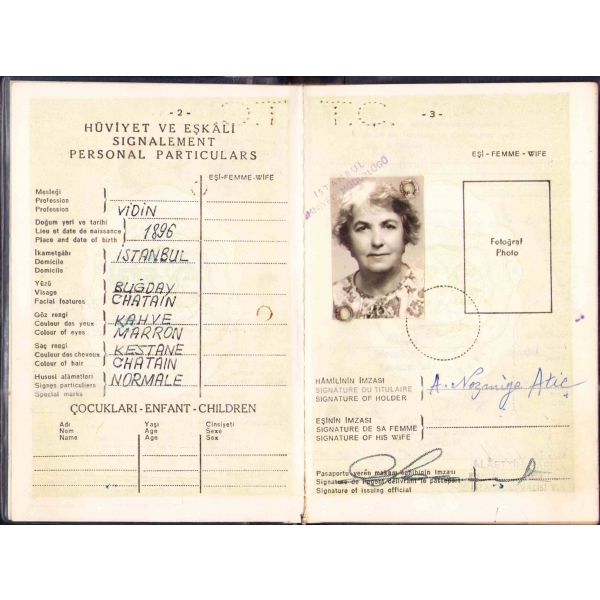 - 2 -
HÜVİYET VE EŞKÂLİ
SIGNALEMENT
PERSONAL PARTICULARS
EŞİ-FEMME-WIFE
Mesleği
Profession
Profession
VİDİN
Doğum yeri ve tarihi
Lieu et date de naissance
Place and date of birth
1896
İkametgâhı
Domicile
Domicile
İSTANBUL
Yüzü
Visage
Facial features
BUĞDAY
CHATAIN
Göz rengi
Couleur des yeux
Colour of eyes
KAHVE
MARRON
Saç rengi
Couleur des cheveux
Colour of hair
KESTANE
CHÂTAIN
Hususi alâmetleri
Signes particuliers
Special marks
NORMALE
ÇOCUKLARI-ENFANT-CHILDREN
Adı Yaşı Cinsiyeti
Nom Age Sexe
Name Age Sex
T.C.
- 3 -
İSTANBUL
EŞİ-FEMME-WIFE
Fotoğraf
Photo
HÂMİLİNİN İMZASI
SIGNATURE DU TITULAIRE
SIGNATURE OF HOLDER
A. Nazmiye Atiç
EŞİNİN İMZASI
SIGNATURE DE SA FEMME
SIGNATURE OF HIS WIFE
Pasaportu veren makam sahibinin imzası
Signature de l'agent délivrant le passeport
Signature of issuing official